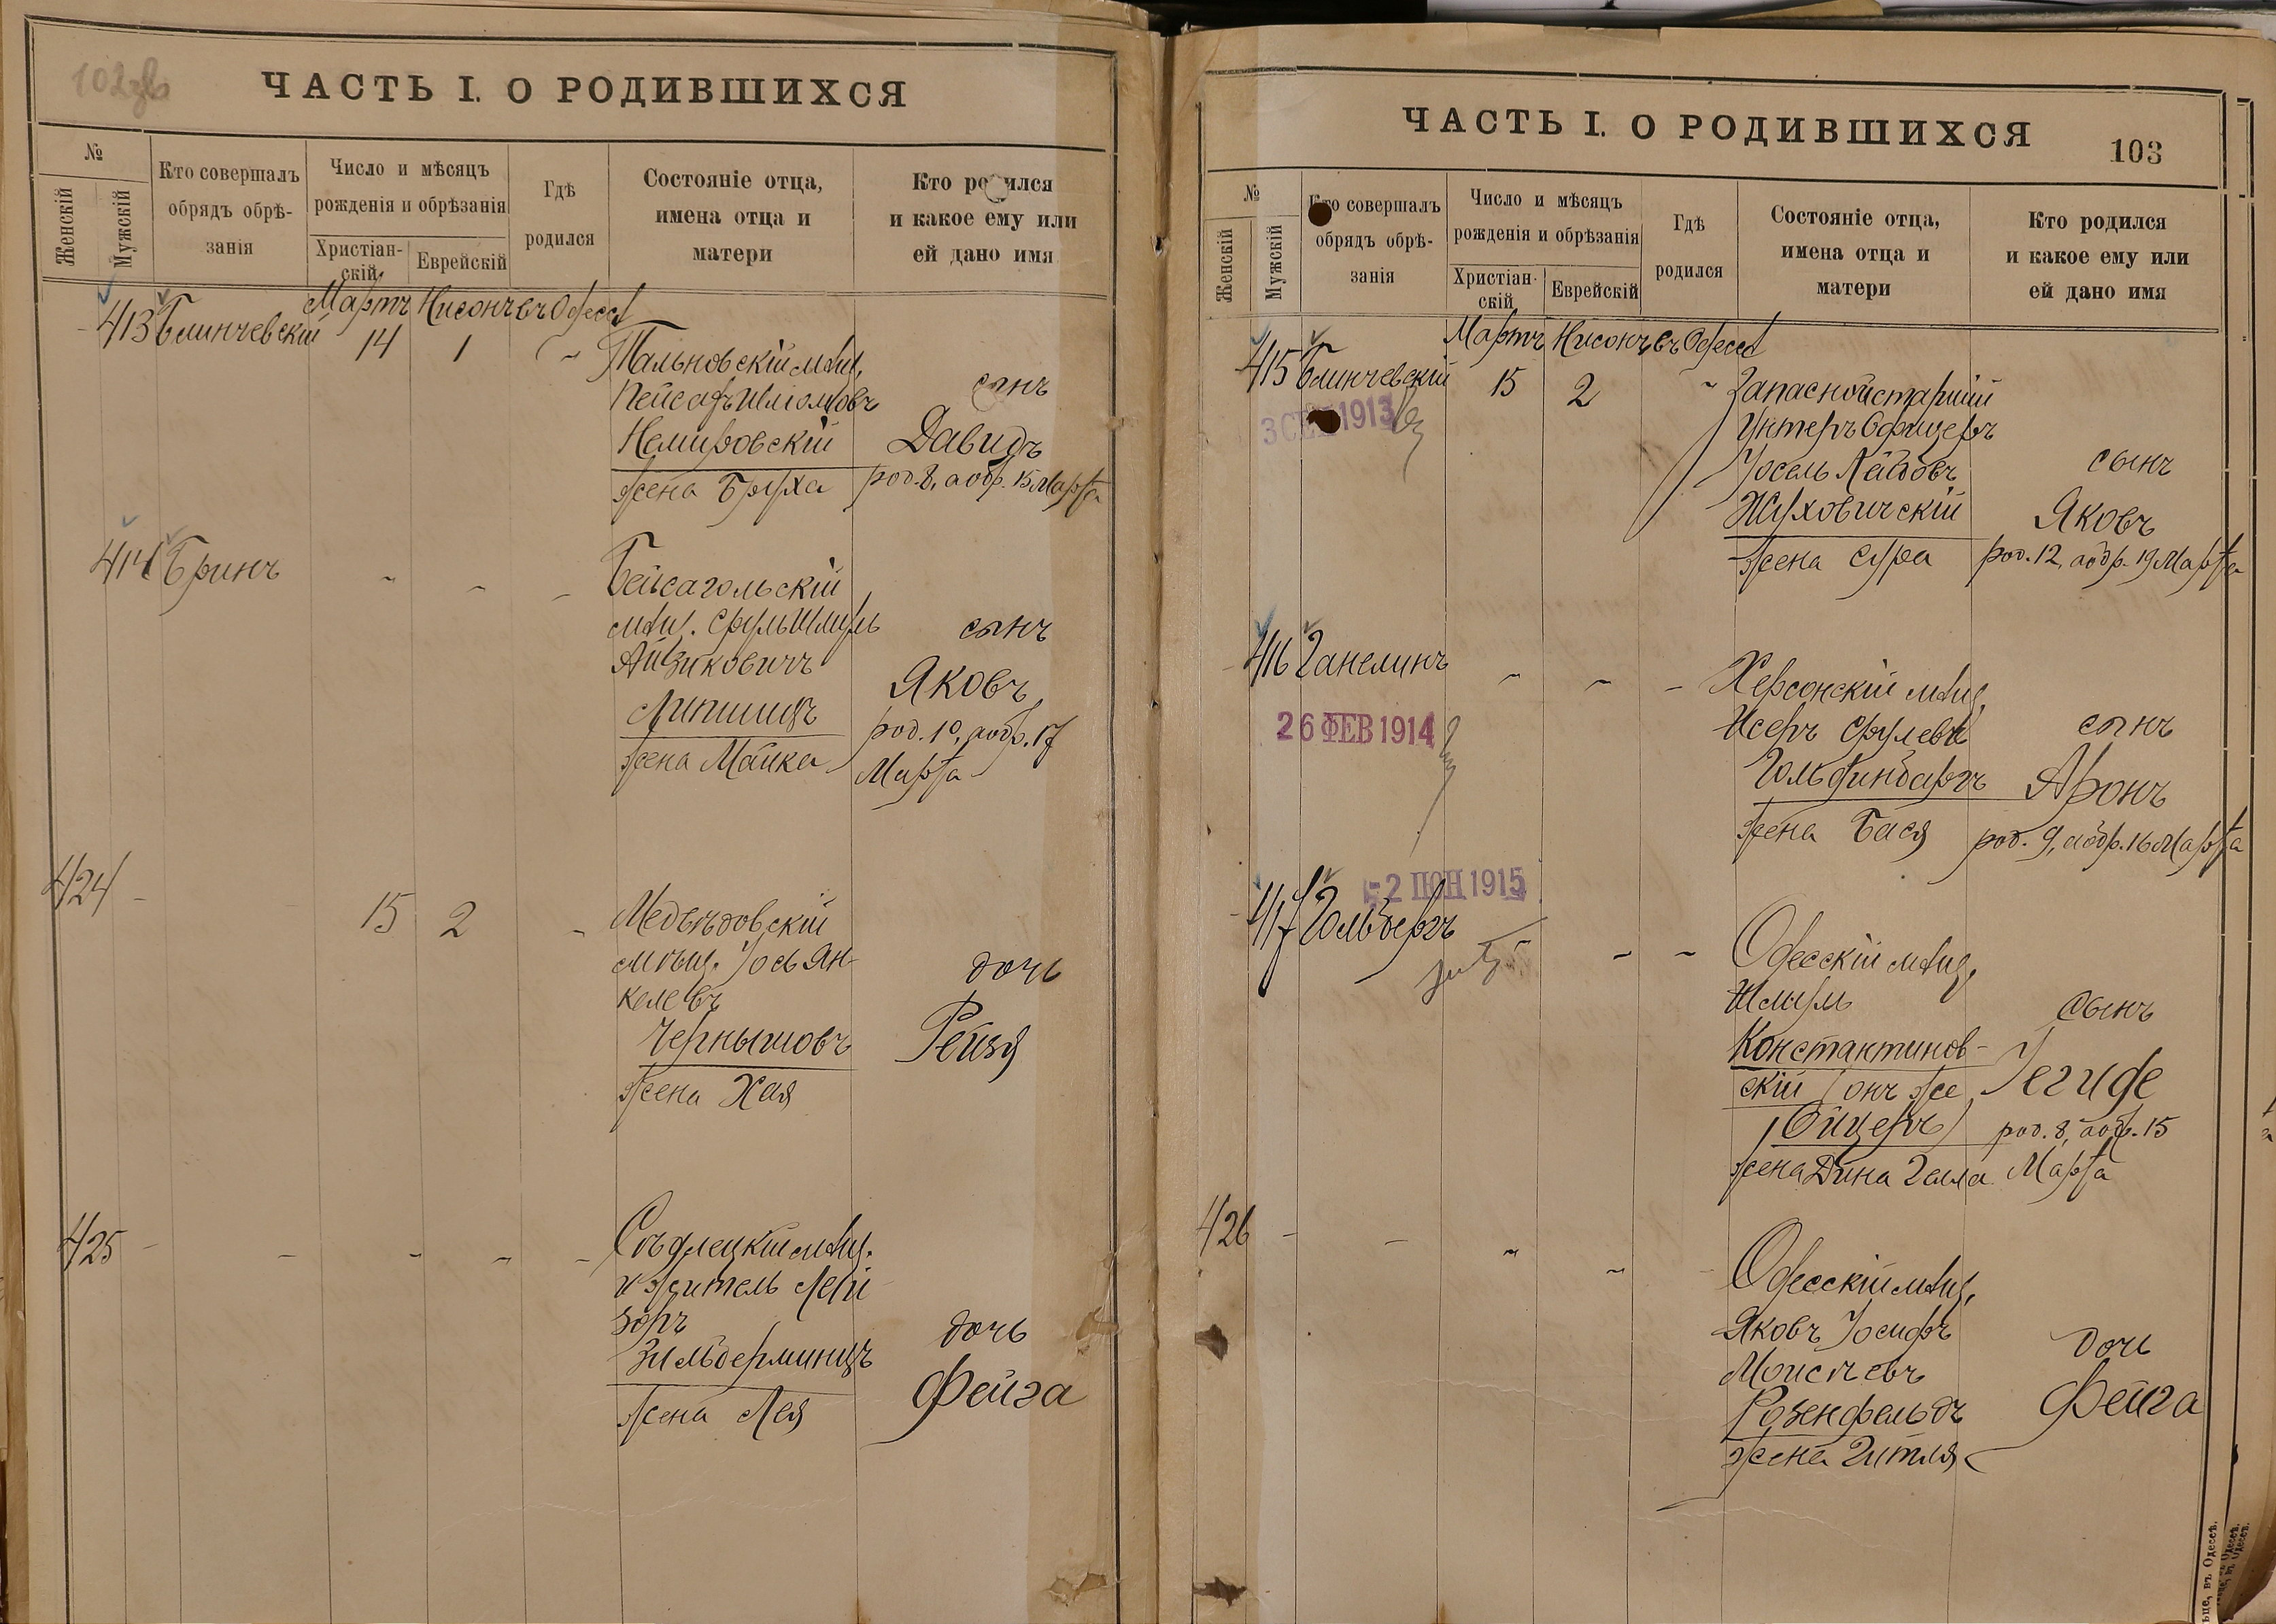 102 об
ЧАСТЬ I. О РОДИВШИХСЯ
№
Женскій
Мужскій
Кто совершалъ
обрядъ обрѣ-
занія
Число и мѣсяцъ
рожденія и обрѣзанія
Христіан-
скій
Еврейскій
Гдѣ
родился
Состояніе отца,
имена отца и
матери
Кто родился
и какое ему или
ей дано имя
Мартъ Нисонъ въ Одессѣ
413 Блинчевскій 14 1
Тальновскій мѣщ.
Пейсахъ Шлiомовъ
Немировскій
жена Бруха
сынъ
Давидъ
род. 8, а обр. 15 Марта
414 Бринъ
Бейсагольскій
мѣщ. Сруль Шмуль
Айзиковичъ
Липшицъ
жена Малка
сынъ
Яковъ
род. 10, а обр. 17
Марта
424 15 2
Медвѣдовскій
мѣщ. Іось Ян-
келевъ
Чернышовъ
жена Хая
дочь
Рейзя
425
Сѣдлецкій мѣщ.
и житель Лей
зоръ
Зильберминцъ
жена Лея
дочь
Фейга
ЧАСТЬ I. О РОДИВШИХСЯ
103
№
Женскій
Мужскій
Кто совершалъ
обрядъ обрѣ-
занія
Число и мѣсяцъ
рожденія и обрѣзанія
Христіан-
скій
Еврейскій
Гдѣ
родился
Состояніе отца,
имена отца и
матери
Кто родился
и какое ему или
ей дано имя
Мартъ Нисонъ въ Одессѣ
415 Блинчевскій 15 2
3 СЕН 1913
Запасной старшій
Унтеръ Офицеръ
Іосель Лейбовъ
Жуховичскій
жена Сура
сынъ
Яковъ
род. 12, а обр. 19 Марта
416 Ганелинъ
26 ФЕВ 1914
Херсонскій мѣщ.
Исеръ Срулевъ
Гольдинбергъ
жена Бася
сынъ
Аронъ
род. 9, а обр. 16 Марта
-2 ІЮН 1915
417 Гольбергъ
Одесскій мѣщ.
Шмуль
Константинов-
скій (онъ же
Ойцеръ)
жена Дина Гала
сынъ
Іегиде
род. 8, а обр. 15
Марта
426
Одесскій мѣщ.
Яковъ Іосифъ
Моисѣевъ
Розенфельдъ
жена Гитля
дочь
Фейга
въ Одессѣ.